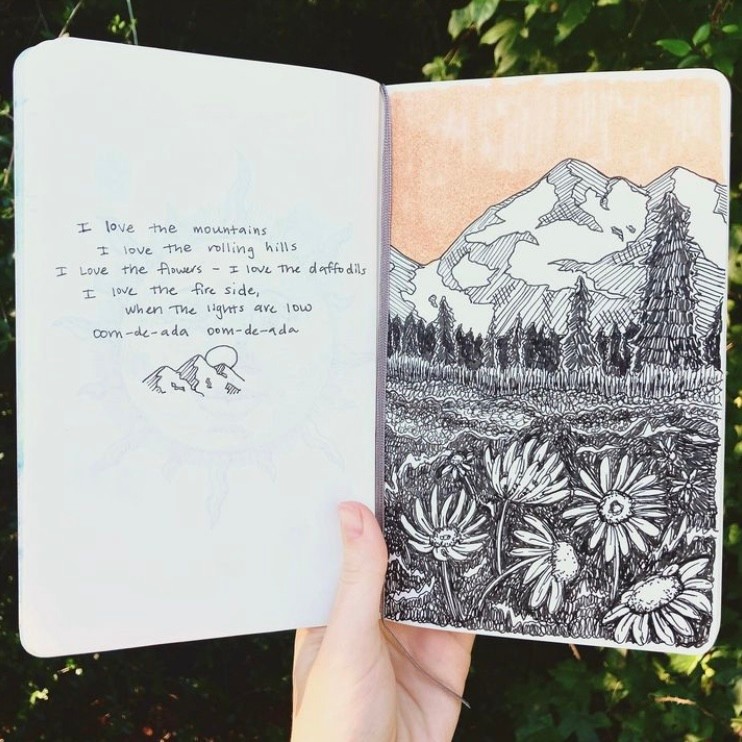 I love the mountains
I love the rolling hills
I Love the flowers - I love The daffodils
I love the fire side,
when The lights are low
oom-de-ada oom-de-ada